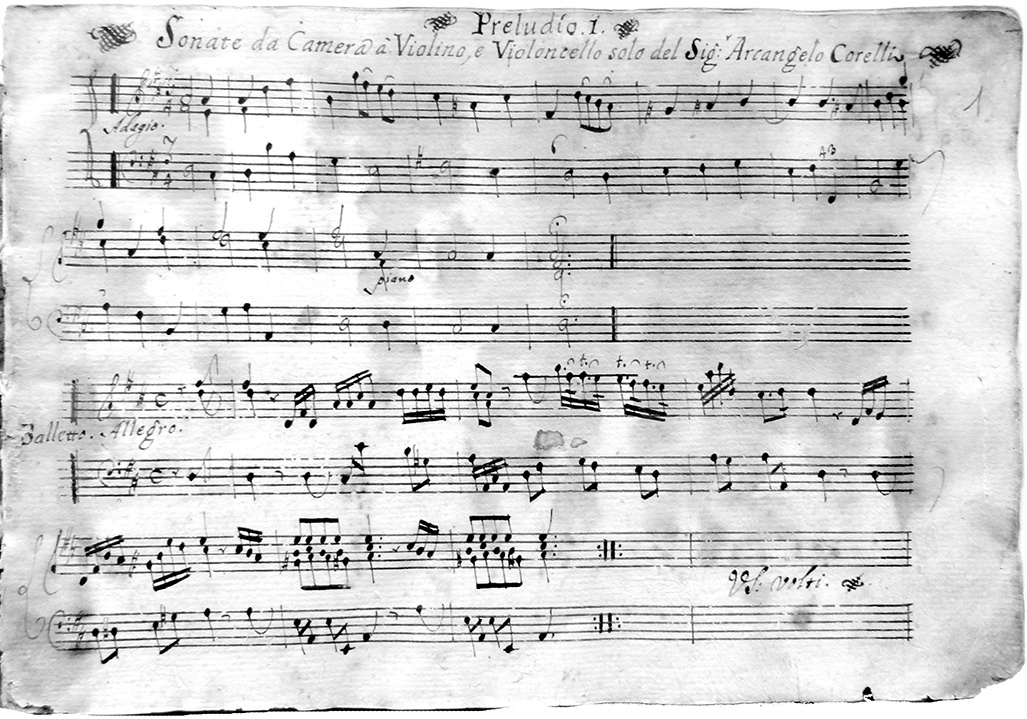 Preludio. 1.
Sonate da Camera à Violino, e Violoncello solo del Sig.r Arcangelo Corelli
1
Adagio.
piano
Balletto. Allegro.
t. t. t. t.
volti.